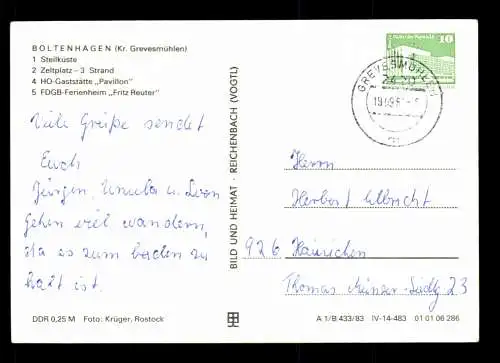 BOLTENHAGEN (Kr. Grevesmühlen)
1 Steilküste
2 Zeltplatz – 3 Strand
4 HO-Gaststätte „Pavillon"
5 FDGB-Ferienheim „Fritz Reuter"
Viele Grüße sendet
Euch
Jürgen, Ursula u. Sven
gehen viel wandern,
da es zum baden zu
kalt ist.
DDR 0,25 M Foto: Krüger, Rostock
BILD UND HEIMAT · REICHENBACH (VOGTL)
10
GREVESMÜHLEN
2420
Herrn
Herbert Albrecht
926 Hainichen
Thomas Münzer-Siedlg 23
A 1/B 433/83 IV-14-483 01 01 06 286